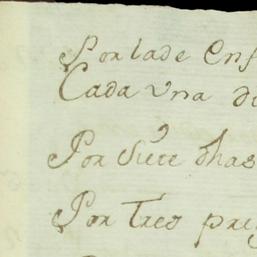 Por lade Enf
Cada Vna d
Por Siete dhas
Por Tres preg